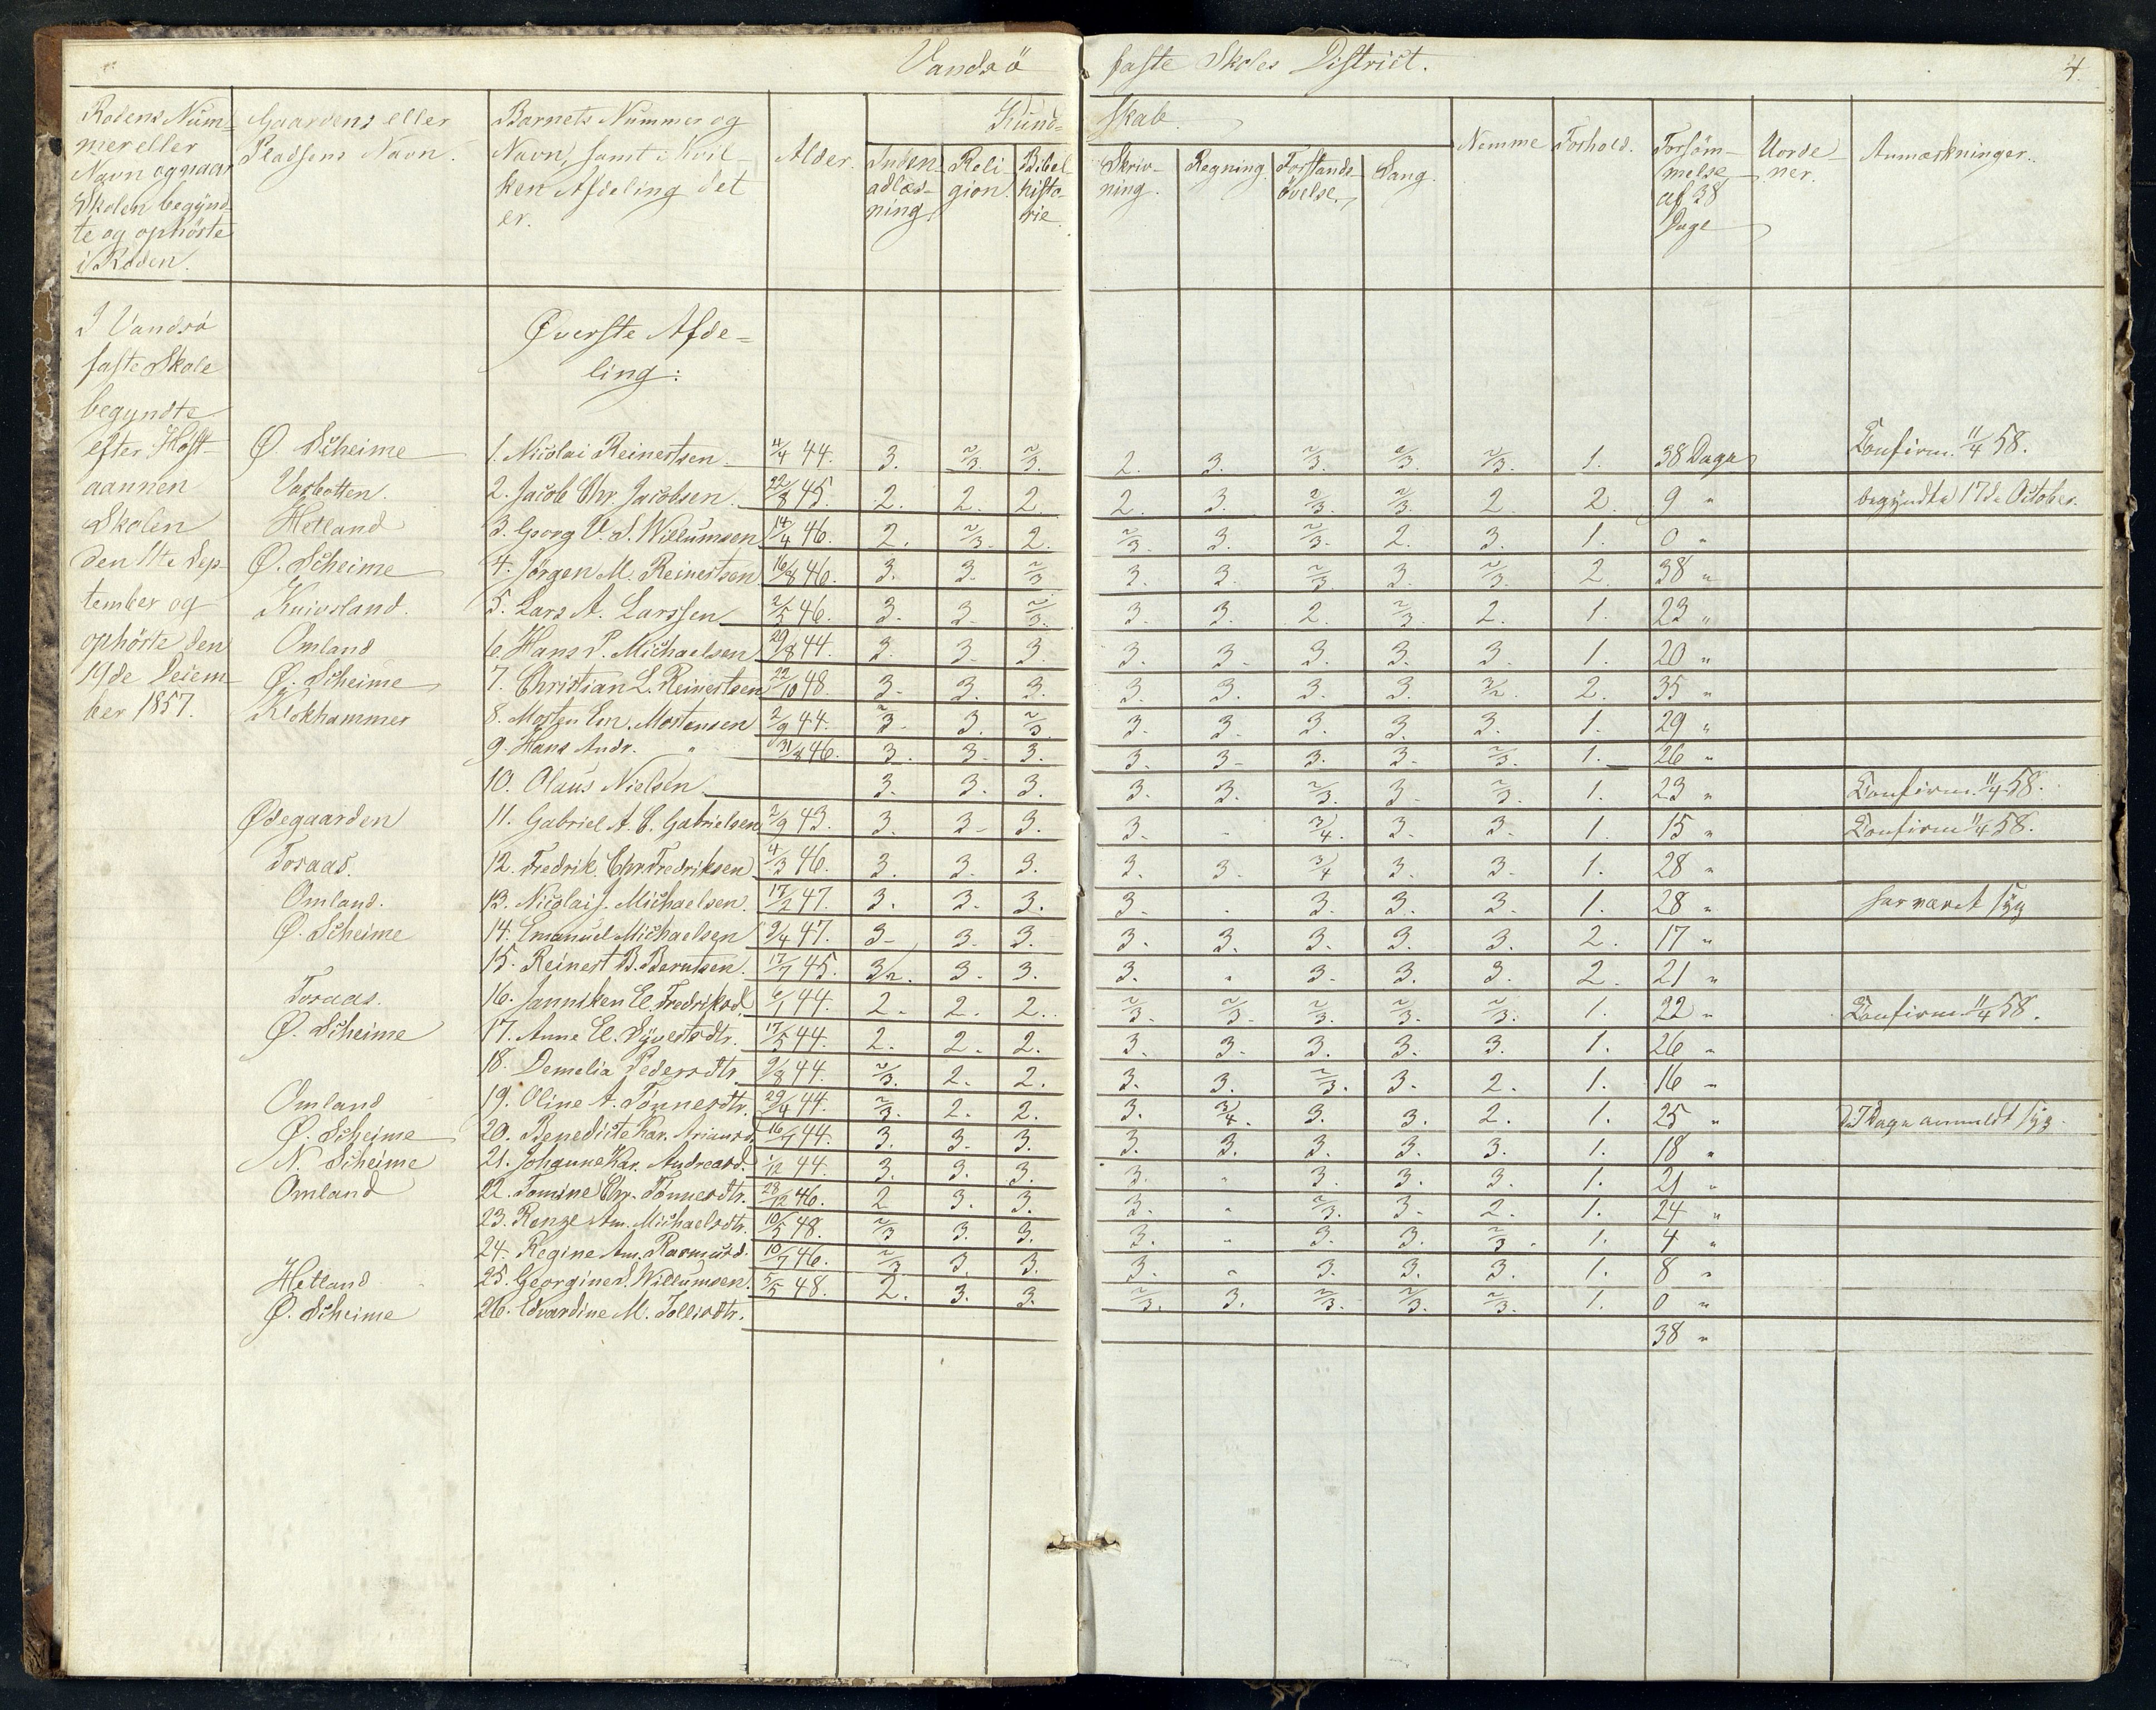 Vandsö faste Skoles District. 4.
Rodens Num-
mer eller
Navn og naar
Skolen begynd-
te og ophörte
i Roden.
Gaardens eller
Pladsens Navn.
Barnets Nummer og
Navn, samt i Hvil-
ken Afdeling det
er.
Alder.
Kund-
skab.
Inden-
adlæs-
ning.
Reli-
gion.
Bibel-
histo-
rie.
Skriv-
ning.
Regning.
Forstands-
övelse.
Sang.
Nemme
Forhold.
Forsöm-
melse
af 38
Dage
Uorde-
ner.
Anmærkninger.
I Vandsö
faste Skole
begyndte
efter Höst-
aannen
Skolen
den 14 Sep-
tember og
ophörte den
19de Decem-
ber 1857.
Øverste Afde-
ling:
Ø. Scheime 1. Nicolai Reinertsen. 4/4 44. 3. 2/3. 2/3. 2. 3. 2/3. 2/3. 2/3. 1. 38 Dage Confirm. 11/4 58.
Vasbotten. 2. Jacob Chr. Jacobsen. 22/8 45. 2. 2. 2. 2. 3. 2/3. 2/3. 2. 2. 9 " begyndte 17de October.
Hetland 3. Georg V. S. Willumsen 14/4 46. 2. 2/3. 2. 2/3. 3. 2/3. 2. 3. 1. 0 "
Ø. Scheime 4. Jörgen M. Reinertsen 16/8 46. 3. 3. 2/3 3. 3. 2/3 3. 2/3. 2. 38 "
Knivsland. 5. Lars A. Larssen 2/5 46. 3. 3. 2/3. 3. 3. 2. 2/3. 2. 1. 23 "
Omland 6. Hans P. Michaelsen 29/8 44. 3. 3. 3. 3. 3. 3. 3. 3. 1. 20 "
Ø. Scheime 7. Christian L. Reinertsen 22/10 48. 3. 3. 3. 3. 3. 3. 3. 3/2. 2. 35 "
Klokhammer 8. Morten Em. Mortensen 2/9 44. 2/3. 3. 2/3 3. 3. 3. 3. 3. 1. 29 "
9. Hans Andr. " 31/8 46. 3. 3. 3. 3. 3. 3. 3. 2/3. 1. 26 "
10. Olaus Nielsen. 3. 3. 3. 3. 3. 2/3. 3. 2/3. 1. 23 " Confirm. 11/4 58.
Ødegaarden 11. Gabriel A. C. Gabrielsen 2/9 43. 3. 3. 3. 3. " 3/4. 3. 3. 1. 15 " Confirm 11/4 58.
Toraas. 12. Fredrik. Chr. Fredriksen 4/3 46. 3. 3. 3. 3. 3. 3/4 3. 3. 1. 28 "
Omland. 13. Nicolai J. Michaelsen. 17/2 47. 3. 3. 3. 3. " 3. 3. 3. 1. 28 " har været syg
Ø. Scheime 14. Emanuel Michaelsen 2/4 47. 3. 3. 3. 3. 3. 3. 3. 3. 2. 17 "
15. Reinert B. Berntsen. 17/7 45. 3/2. 3. 3. 3. " 3. 3. 3. 2. 21 "
Toraas. 16. Janniken El. Fredriksd. 6/1 44. 2. 2. 2. 2/3. 2/3. 2/3. 2/3. 2/3. 1. 22 " Confirm. 11/4 58.
Ø. Scheime 17. Anne El. Syvertsdtr. 17/5 44. 2. 2. 2. 3. 3. 3. 3. 3. 1. 26 "
18. Demelia Pedersdtr. 9/8 44. 2/3. 2. 2. 3. 3. 2/3. 3. 2. 1. 16 "
Omland 19. Oline A. Tönnesdtr. 29/4 44. 2/3. 2. 2. 3. 3/4. 3. 3. 2. 1. 25 " Dage anmeldt syg.
Ø. Scheime 20. Benedicte Kar. Ariansd. 16/7 44. 3. 3. 3. 3. 3. 3. 3. 3. 1. 18 "
N. Scheime 21. Johanne Kar. Andreasd. 1/12 44. 3. 3. 3. 3. " 3. 3. 3. 1. 21 "
Omland 22. Tomine Chr. Tönnesdtr. 28/12 46. 2 3. 3. 3. " 2/3. 3. 2. 1. 24 "
23. Renze Am. Michaelsdtr. 10/5 48. 2/3 3. 3. 3. " 3. 3. 2/3. 1. 4 "
24. Regine Am. Rasmusd. 10/7 46. 2/3 3. 3. 3. " 3. 3. 3. 1. 8 "
Hetland 25. Georgine S. Willumsen. 5/5 48. 2. 3. 3. 2/3. 3. 2/3. 2/3. 2/3. 1. 0 "
Ø. Scheime 26. Edvardine M. Tollisdtr. 38 "